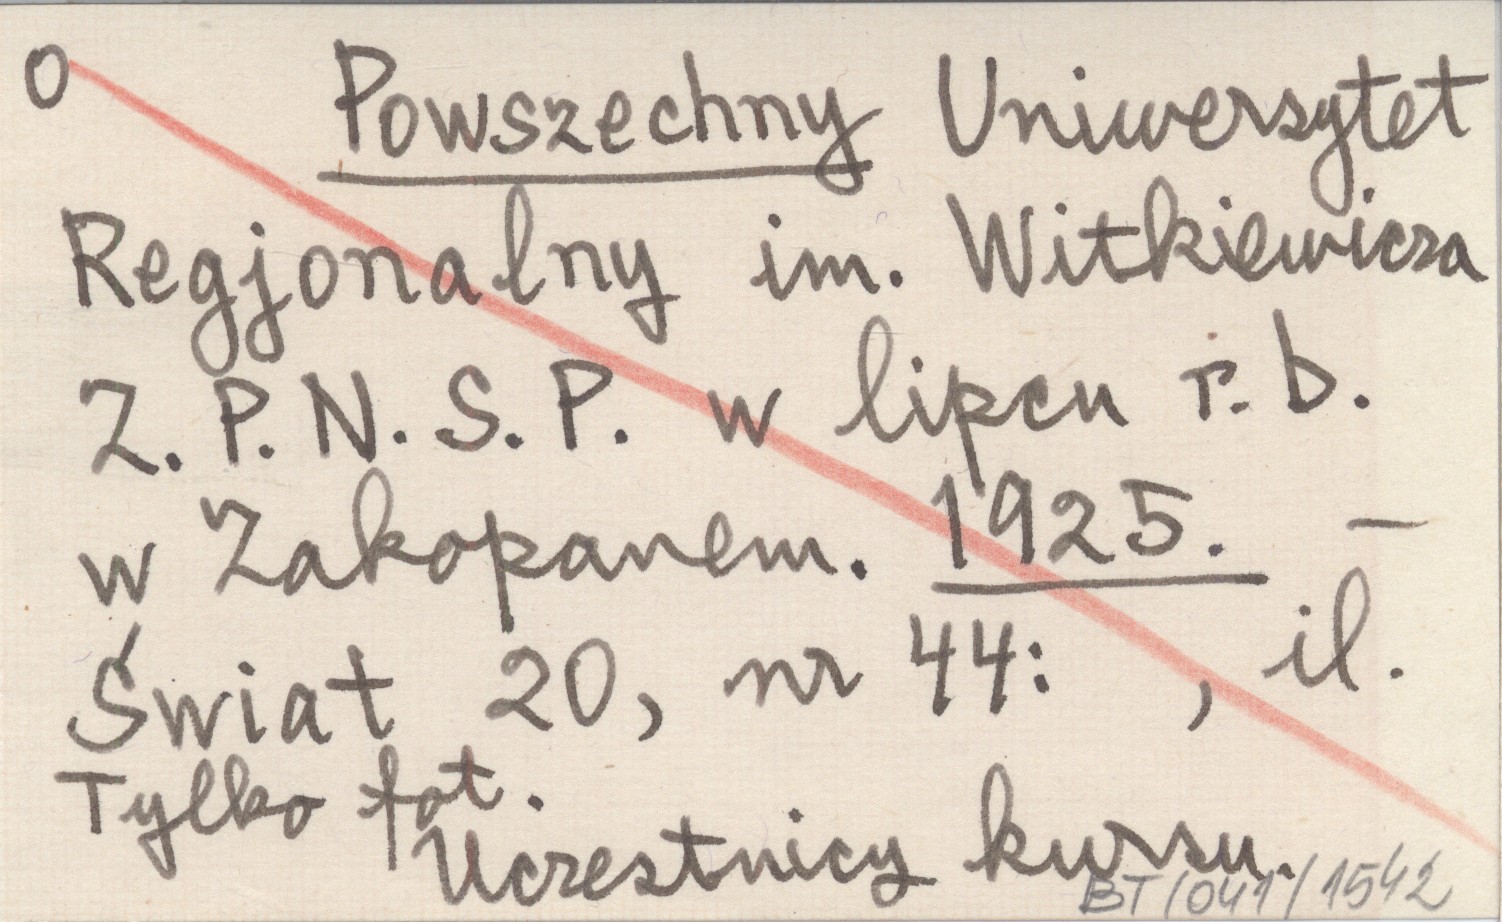 O Powszechny Uniwersytet
Regjonalny im. Witkiewicza
Z. P. N. S. P. w lipcu r. b.
w Zakopanem. 1925. —
Świat 20, nr 44: , il.
Tylko fot.
Uczestnicy kursu.
BT/041/1542